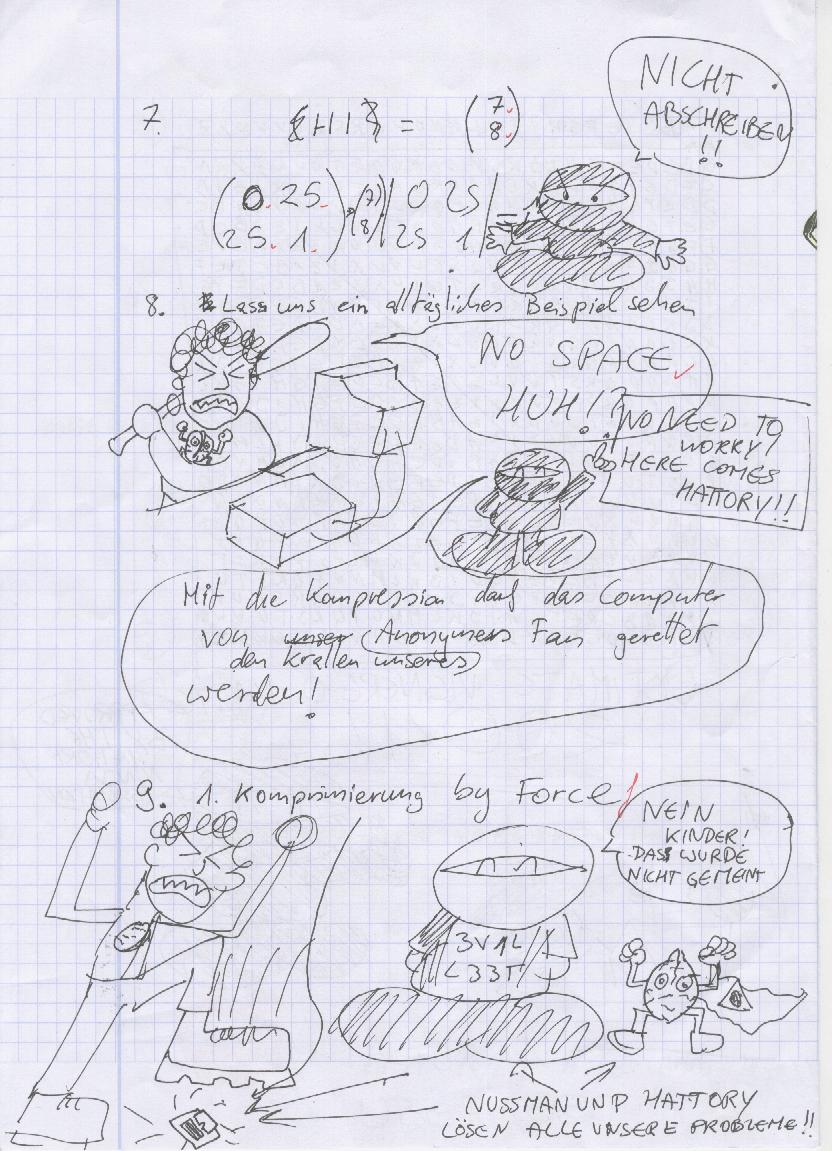 NICHT
ABSCHREIBEN
!!
7. {HI} = (7
8)
(0. 25.) (7) | 0 25 |
(25. 1.) (8) | 25 1 |
8. Lass uns ein alltägliches Beispiel sehen
NO SPACE
HUH!?
NO NEED TO
WORRY!
HERE COMES
HATTORY!!
Mit die Kompression darf das Computer
von unser (Anonymers Fan gerettet
den Krallen unseres)
werden!
9. 1. Komprimierung by Force!
NEIN
KINDER!
DASS WURDE
NICHT GEMEINT
3V1L
L33T
NUSSMAN UND HATTORY
LÖSEN ALLE UNSERE PROBLEME!!